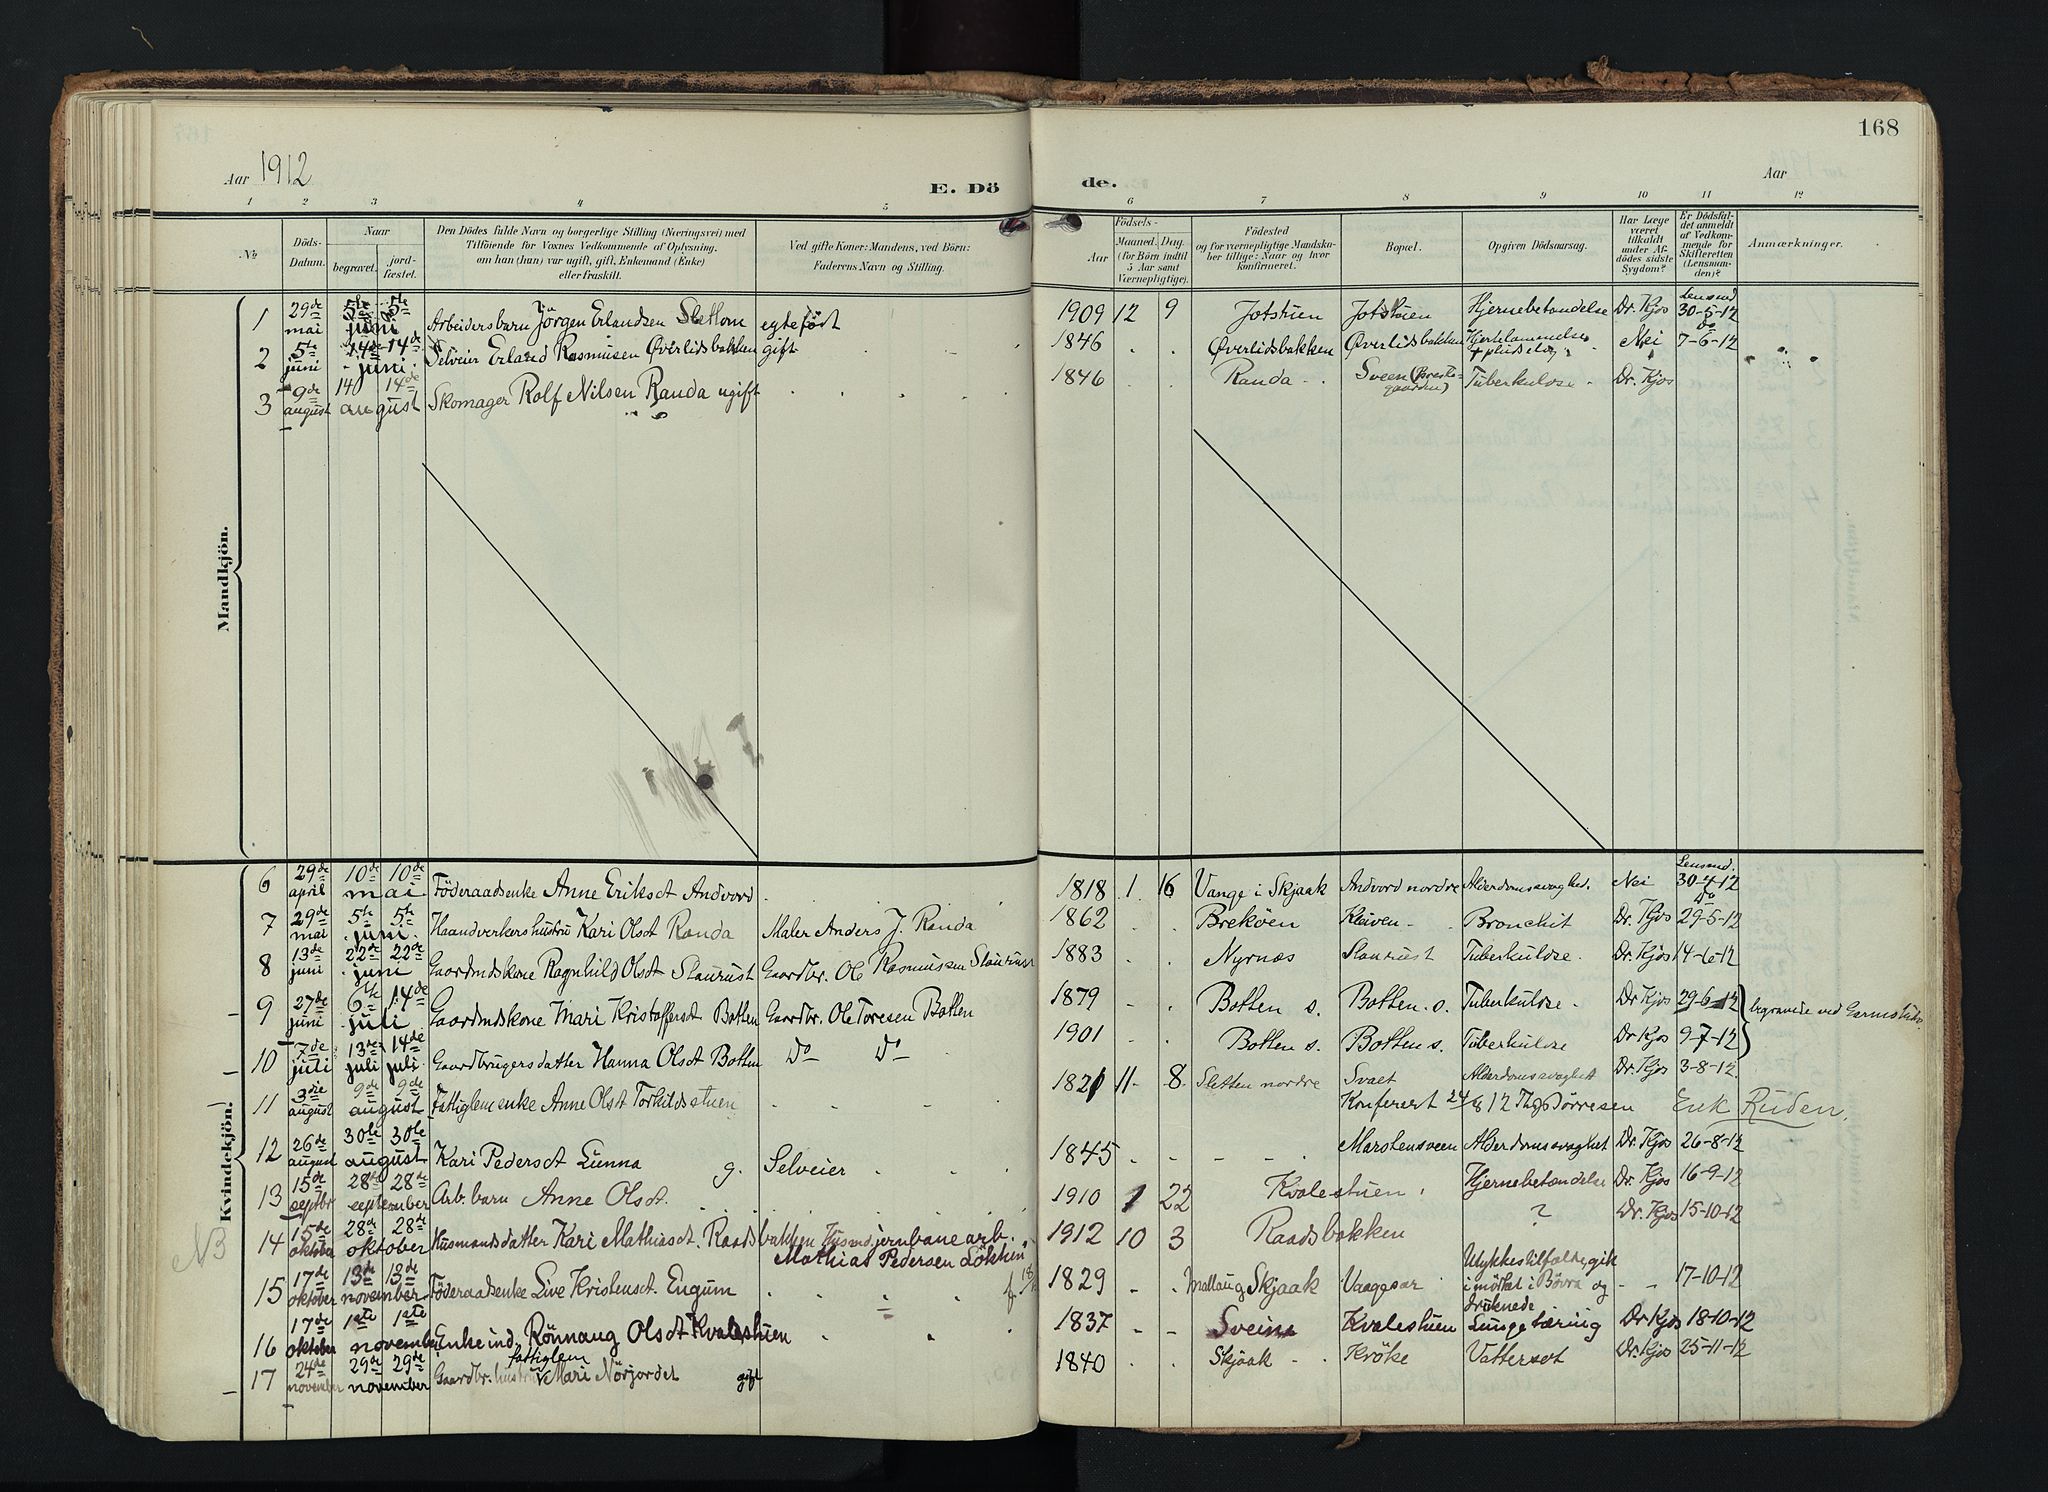 168
Aar 1912
E. Dö
de.
Aar
1 2 3 4 5 6 7 8 9 10 11 12
No
Döds-Datum.
Naar
begravet.
jord-fæstet.
Den Dödes fulde Navn og borgerlige Stilling (Næringsvei) med
Tilföiende for Voxnes Vedkommende af Oplysning,
om han (hun) var ugift, gift, Enkemand (Enke)
eller fraskilt.
Ved gifte Koner: Mandens, ved Börn:
Faderens Navn og Stilling.
Födsels-
Aar
Maaned. Dag.
(for Börn indtil
5 Aar samt
Værnepligtige).
Födested
og for værnepligtige Mandska-
ber tillige: Naar og hvor
konfirmeret.
Bopæl.
Opgiven Dödsaarsag.
Har Læge
været
tilkaldt
under Af-
dödes sidste
Sygdom?
Er Dödsfal-
det anmeldt
af Vedkom-
mende for
Skifteretten
(Lensman-
den)?
Anmærkninger.
Mandkjön.
1 29de mai 5te 5te juni Arbeidersbarn Jörgen Erlandsen Slettom egtefödt 1909 12 9 Jotstuen Jotstuen Hjernebetændelse Dr. Kjos Lensmd. 30-5-12
2 5te juni 14de 14de juni Selveier Erland Rasmusen Øverlidsbakken gift 1846 Øverlidsbakken Øverlidsbakken Nei do 7-6-12
3 9de august 14 14de august Skomager Rolf Nilsen Randa ugift 1846 Randa Sveen (Preste-gaarden) Tuberkulose Dr. Kjos
Kvindekjön.
6 29de april 10de 10de mai Föderaadsenke Anne Eriksdt Andvord 1818 1 16 Vange i Skjaak Andvord nordre Alderdomssvaghed. Nei Lensmd. 30-4-12
7 29de mai 5te 5te juni Haandverkershustru Kari Olsdt Randa Maler Anders J. Randa 1862 Breköen Kleiven Bronchit Dr. Kjos do 29-5-12
8 13de juni 22de 22de juni Gaardmdskone Ragnhild Olsdt Staurust Gaardbr. Ole Rasmusen Staurust 1883 Nyrnæs Staurust Tuberkulose Dr. Kjos 14-6-12
9 27de juni 6te 14de juli Gaardmdskone Mari Kristoffersdt Botten Gaardbr. Ole Toresen Botten 1879 Botten s. Botten s. Tuberkulose Dr Kjos 29-6-12 begravede ved Garmokirke
10 7de juli 13de juli 14de juli Gaardbrugersdatter Hanna Olsdt Botten Do Do 1901 Botten s. Botten s. Tuberkulose Dr Kjos 9-7-12
11 3die august 9de 9de august Fattiglem enke Anne Olsdt Torkildsstuen 1821 11 8 Sletten nordre Svaet Alderdomssvaghet Dr. Kjos 3-8-12
Konferert 24/8 12 Th. Dörresen Erik Ruden
12 26de august 30te 30te august Kari Pedersdt Lunna g. Selveier 1845 Marstensveen Alderdomssvaghet Dr. Kjos 26-8-12
13 15de septbr 28de 28de september Arb. barn Anne Olsdt. 1910 1 22 Kvalestuen Hjernebetændelse Dr. Kjos 16-9-12
NB 14 15de oktober 28de 28de oktober Husmandsdatter Kari Mathiasdt. Raadsbakken Husmd. jernbanearb. 1912 10 3 Raadsbakken ? Dr. Kjos 15-10-12
Mathias Pedersen Lökken
15 17de oktober 13de 13de november Föderaadsenke Live Kristensdt. Engum 1829 Mallaug Skjaak Vaagesar Ulykkestilfælde, gik i mörket i Bövra og druknede 17-10-12
16 17de oktober 1ste 1ste november Enke ind. Rönnaug Olsdt Kvalestuen 1837 Sveine Kvalestuen Lungetæring Dr Kjos 18-10-12
fattiglem
17 24de november 29de 29de november Gaardbr. hustru Mari Nörjordet gift 1840 Skjaak Kröke Vattersot Dr. Kjos 25-11-12